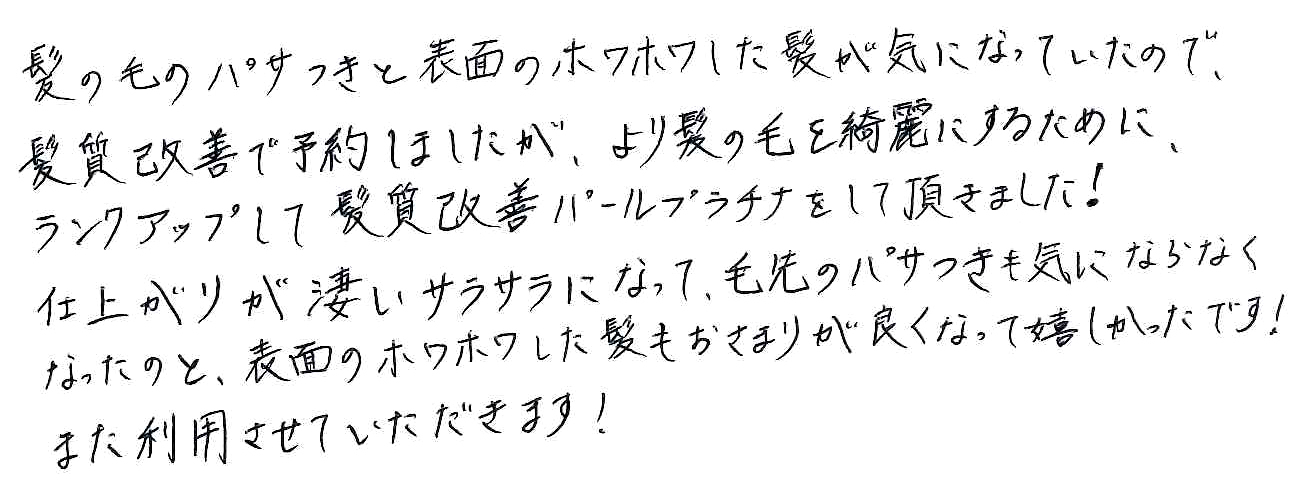 髪の毛のパサつきと表面のホワホワした髪が気になっていたので、
髪質改善で予約しましたが、より髪の毛を綺麗にするために、
ランクアップして髪質改善パールプラチナをして頂きました!
仕上がりが凄いサラサラになって、毛先のパサつきも気にならなく
なったのと、表面のホワホワした髪もおさまりが良くなって嬉しかったです!
また利用させていただきます!